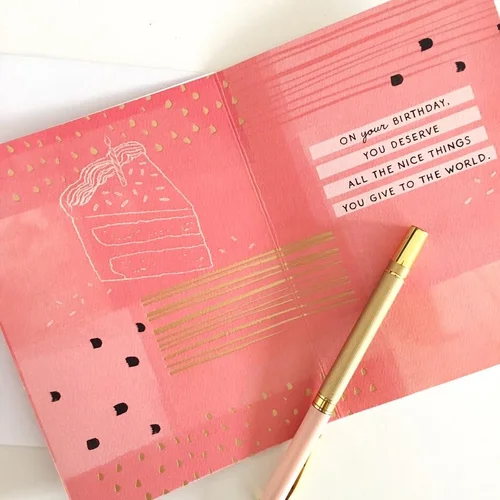 ON your BIRTHDAY,
YOU DESERVE
ALL THE NICE THINGS
YOU GIVE TO THE WORLD.